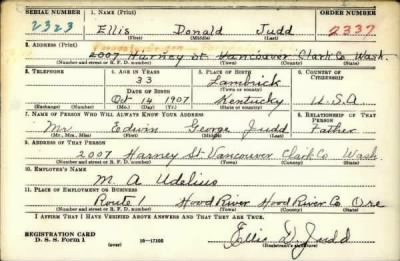 SERIAL NUMBER 1. NAME (Print) ORDER NUMBER
2323 Ellis Donald Judd 2337
(First) (Middle) (Last)
2. ADDRESS (Print)
2007 Harney St Vancouver Clark Co Wash.
(Number and street or R. F. D. number) (Town) (County) (State)
3. TELEPHONE 4. AGE IN YEARS 5. PLACE OF BIRTH 6. COUNTRY OF CITIZENSHIP
33
DATE OF BIRTH (Town or county)
Oct 14 1907 Kentucky U.S.A
(Exchange) (Number) (Mo.) (Day) (Yr.) (State or country)
7. NAME OF PERSON WHO WILL ALWAYS KNOW YOUR ADDRESS 8. RELATIONSHIP OF THAT PERSON
Mr. Edwin George Judd Father
(Mr., Mrs., Miss) (First) (Middle) (Last)
9. ADDRESS OF THAT PERSON
2007 Harney St Vancouver Clark Co Wash
(Number and street or R. F. D. number) (Town) (County) (State)
10. EMPLOYER'S NAME
M. A Udelius
11. PLACE OF EMPLOYMENT OR BUSINESS
Route 1 Hood River Hood River Co Ore
(Number and street or R. F. D. number) (Town) (County) (State)
I AFFIRM THAT I HAVE VERIFIED ABOVE ANSWERS AND THAT THEY ARE TRUE.
REGISTRATION CARD
D. S. S. Form 1 (over) 16-17105 Ellis D. Judd
(Registrant's signature)